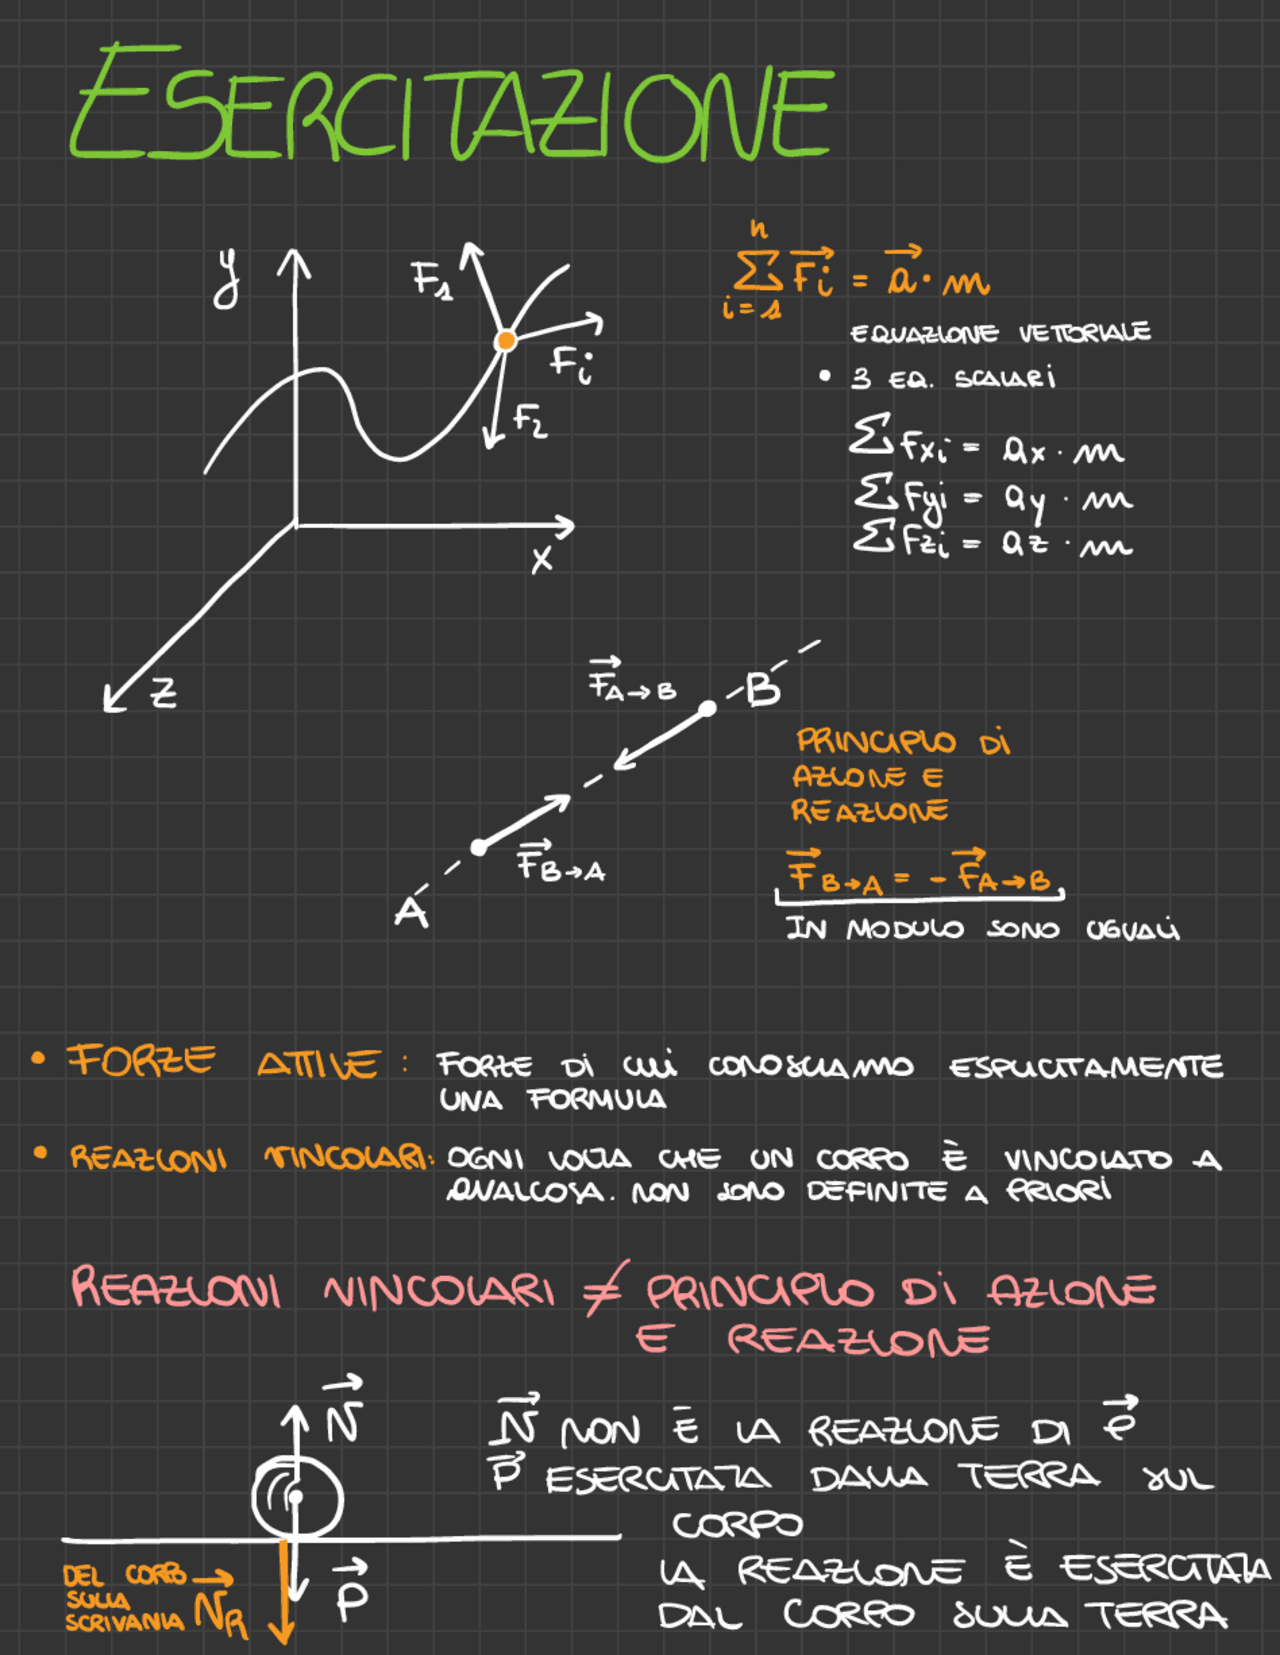 ESERCITAZIONE
y
F₁
Fi
F₂
x
z
n
∑ F⃗i = a⃗ · m
i = 1
EQUAZIONE VETTORIALE
• 3 EQ. SCALARI
∑ Fxi = ax · m
∑ Fyi = ay · m
∑ Fzi = az · m
F⃗A→B
B
F⃗B→A
A
PRINCIPIO DI
AZIONE E
REAZIONE
F⃗B→A = - F⃗A→B
IN MODULO SONO UGUALI
• FORZE ATTIVE : FORZE DI CUI CONOSCIAMO ESPLICITAMENTE
UNA FORMULA
• REAZIONI VINCOLARI: OGNI VOLTA CHE UN CORPO È VINCOLATO A
QUALCOSA. NON SONO DEFINITE A PRIORI
REAZIONI VINCOLARI ≠ PRINCIPIO DI AZIONE
E REAZIONE
N⃗
P⃗
DEL CORPO
SULLA
SCRIVANIA N⃗R
N⃗ NON È LA REAZIONE DI P⃗
P⃗ ESERCITATA DALLA TERRA SUL
CORPO
LA REAZIONE È ESERCITATA
DAL CORPO SULLA TERRA